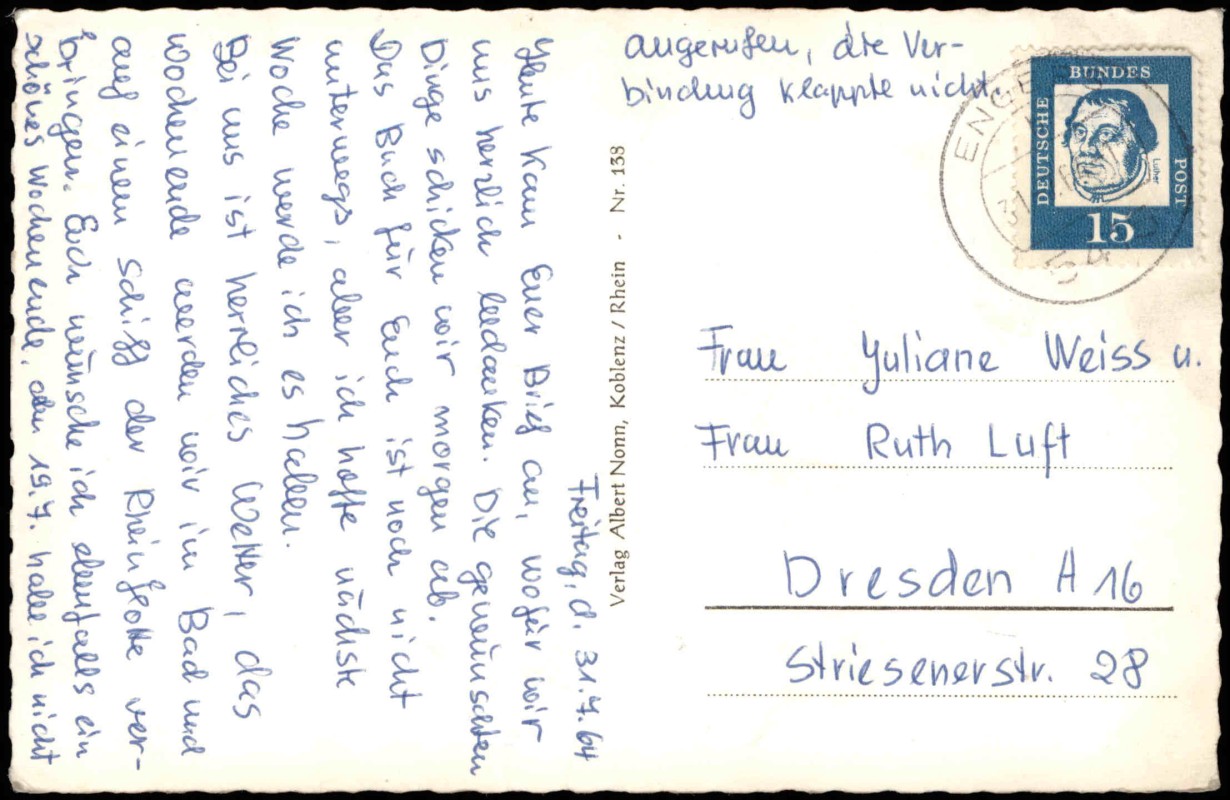 Freitag, d. 31.7.64
Heute kam Euer Brief an, wofür wir
uns herzlich bedanken. Die gewünschten
Dinge schicken wir morgen ab.
Das Buch für Euch ist noch nicht
unterwegs, aber ich hoffe nächste
Woche werde ich es haben.
Bei uns ist herrliches Wetter, das
Wochenende werden wir im Bad und
auf einem Schiff der Rheinflotte ver-
bringen. Euch wünsche ich ebenfalls ein
schönes Wochenende, am 19.7. habe ich nicht
angerufen, die Ver-
bindung klappte nicht.
Verlag Albert Nonn, Koblenz / Rhein - Nr. 138
DEUTSCHE BUNDES POST
Luther
15
Frau Yuliane Weiss u.
Frau Ruth Luft
Dresden A 16
Striesenerstr. 28